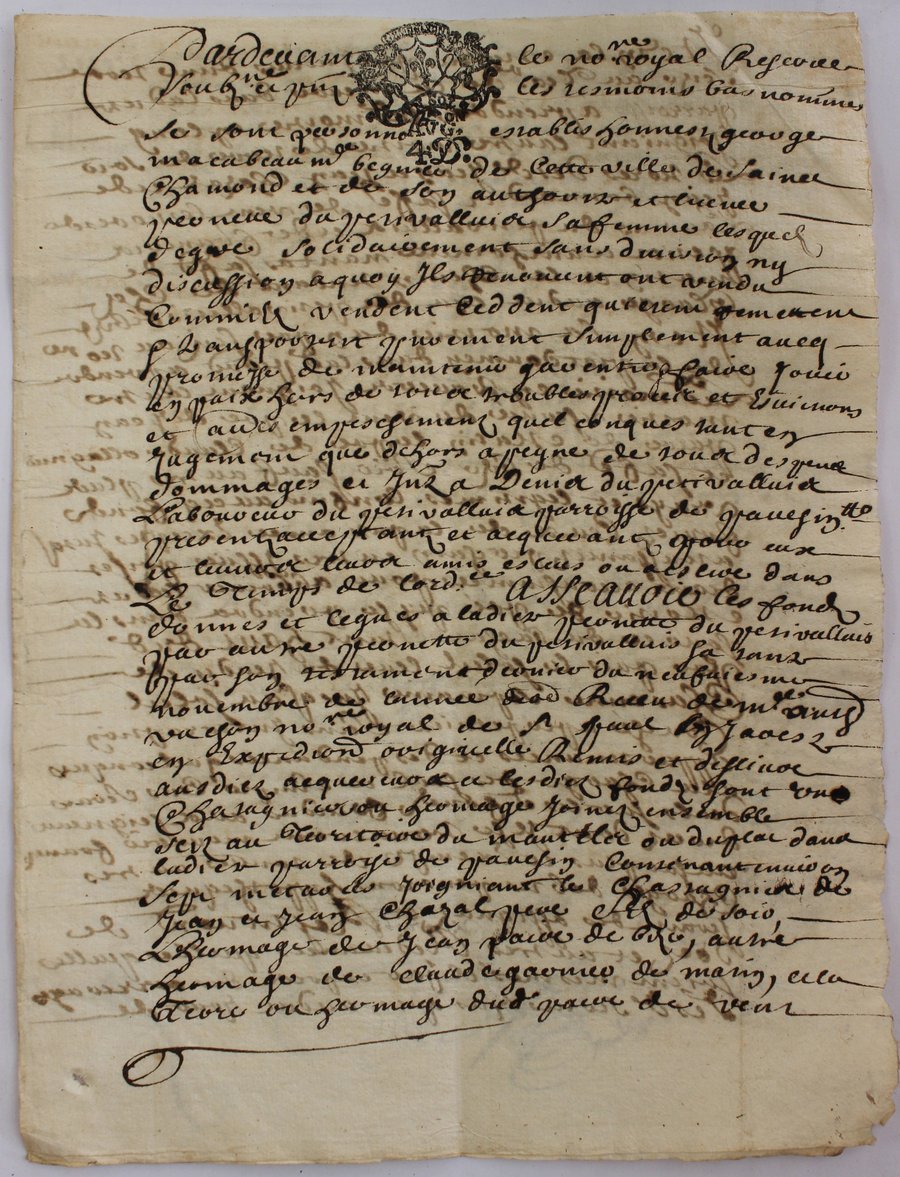 Pardevant le no.re royal Reserve
soub.ne et pnt les tesmoins bas nommes
LYON
4 D.
se sont personno establis honneste george
macabeau m.d begnier de cette ville de Sainct
Chamond et de son authorité et licence
perneue du perivalluis sa femme lesquels
de gre solidairement sans division ny
discussion a quoy Ils renoncent ont vendu
comme vendent ceddent quittent remettent
et transportent purement simplement avecq
promesse de maintenir garentir faire jouir
en paix hors de tous troubles et Evictions
et autres empeschements quelconques tant en
Jugement que dehors a peyne de tous despens
dommages et Intz a Denis du perivalluis
Laboureur du perivalluis parroisse de pavesin
present acceptant et acquerant pour eux
et leurs amis esleus ou a eslire dans
Le Temps de lord.ce ASSEAVOIR les fondz
donnes et legues a ladite pernette du perivalluis
par autre pernette du perivalluis sa tante
par son testament dernier du neufviesme
novembre de lannee Receu de m.e
vachon no.re royal de st paul en Jarest
en Expedition originelle Remis et dellivre
ausdits acquereurs et lesdits fondz sont une
Chatagnier ou hermage Joinct ensemble
size au Territoire du ou du plat dans
ladite parroisse de pavesin Contenant environ
sept metares Joigniant le Chastagnier de
Jean et Jean Chazal pere filz de soir
Lhermage de Jean paire de autre
hermage de claude garnier de marin, et la
Terre ou hermage dud paire de vent